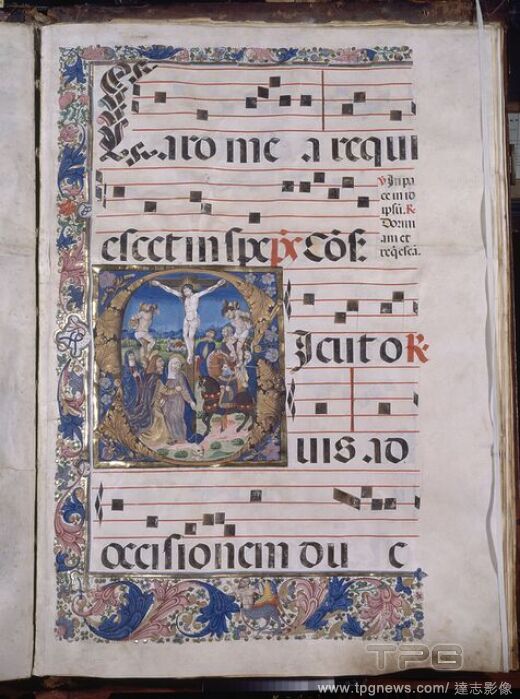 Caro me a requi
escet in spe p̄s Cōf:
V Jn pa
ce in id
ipsū. R.
Dormi
am et
reqēscā.
Sicut o R.
uis ad
occisionem du c
TPG
www.tpgnews.com / 達志影像